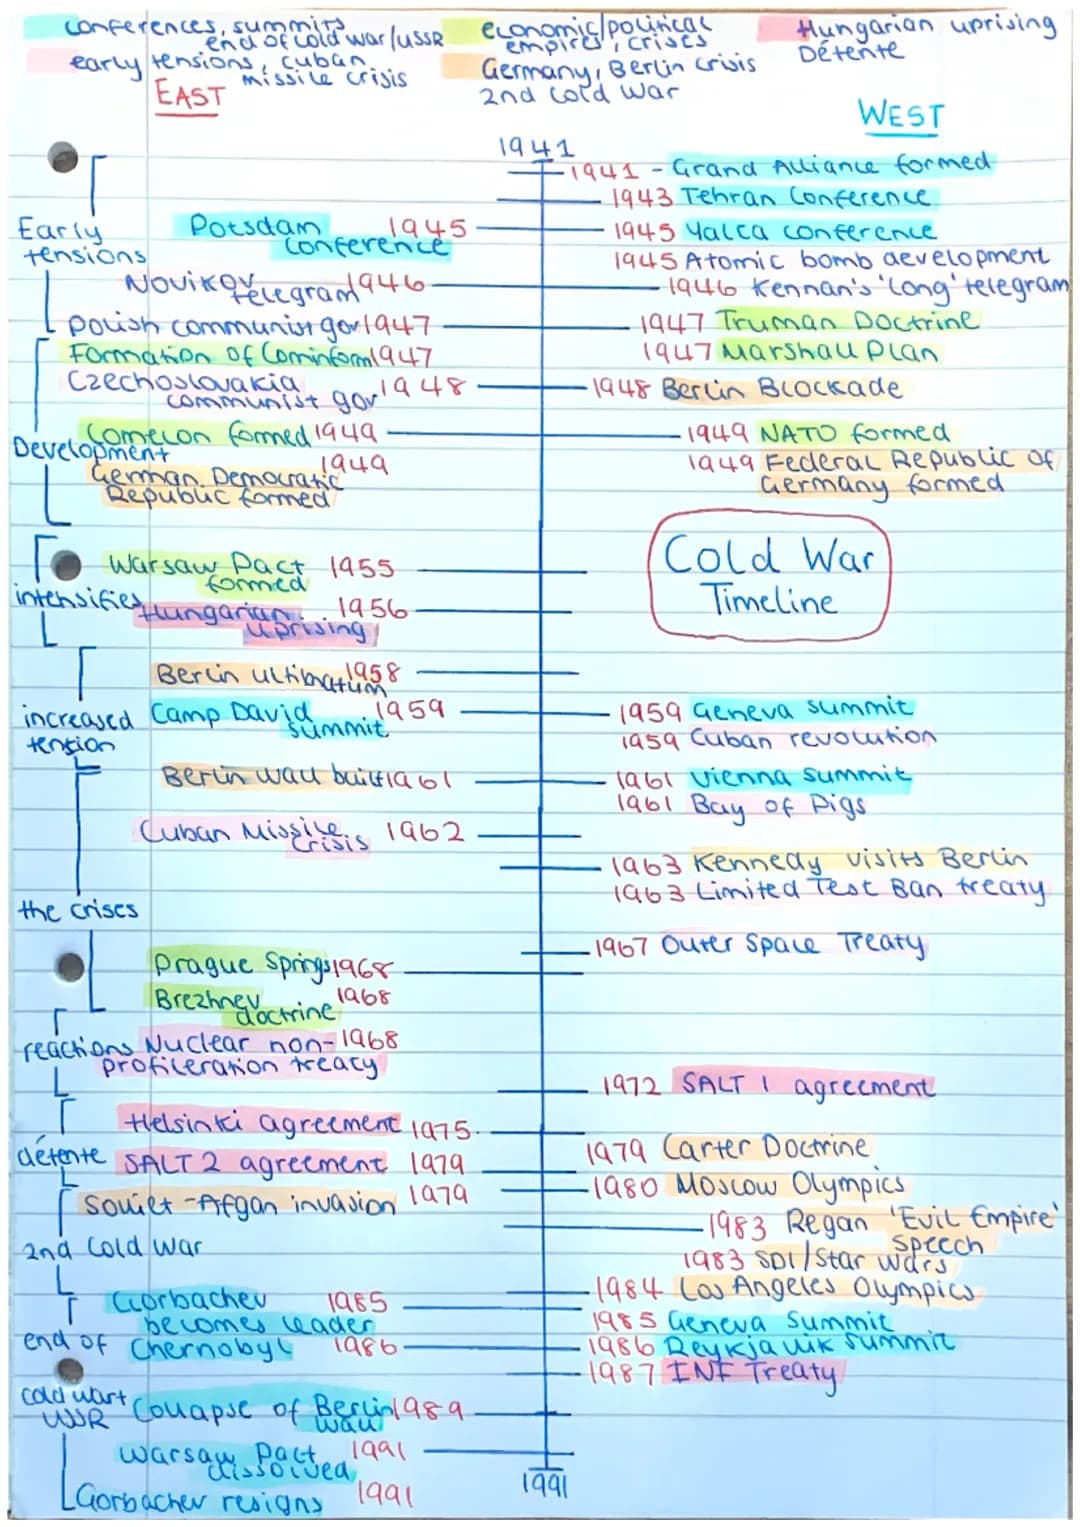 conferences, summits
end of cold war/USSR
early tensions, cuban
missile crisis
economic/political
empires, crises
Germany, Berlin crisis
2nd cold war
Hungarian uprising
Détente
EAST
WEST
1941
1941 - Grand Alliance formed
1943 Tehran Conference
Early
tensions
Potsdam 1945
conference
1945 Yalta conference
1945 Atomic bomb development
Novikov 1946
telegram
1946 Kennan's 'long' telegram
polish communist gov 1947
1947 Truman Doctrine
Formation of Cominform 1947
1947 Marshall Plan
Czechoslovakia 1948
communist gov
1948 Berlin Blockade
Development
Comecon formed 1949
1949 NATO formed
German Democratic 1949
Republic formed
1949 Federal Republic of
Germany formed
Cold War
Timeline
intensifies
Warsaw Pact 1955
formed
Hungarian 1956
uprising
Berlin ultimatum 1958
increased
tension
Camp David 1959
summit
1959 Geneva summit
1959 Cuban revolution
Berlin wall built 1961
1961 Vienna summit
1961 Bay of Pigs
Cuban Missile 1962
Crisis
1963 Kennedy visits Berlin
1963 Limited Test Ban treaty
the crises
1967 Outer Space Treaty
Prague Springs 1968
Brezhnev 1968
doctrine
reactions
Nuclear non- 1968
profileration treaty
1972 SALT 1 agreement
Helsinki agreement 1975
détente
SALT 2 agreement 1979
1979 Carter Doctrine
Soviet-Afgan invasion 1979
1980 Moscow Olympics
2nd Cold War
1983 Regan 'Evil Empire'
speech
1983 SDI/Star wars
1984 Los Angeles Olympics
Gorbachev 1985
becomes leader
1985 Geneva Summit
end of
cold war +
USSR
Chernobyl 1986
1986 Reykjavik summit
1987 INF Treaty
Collapse of Berlin 1989
wall
Warsaw Pact 1991
dissolved
Gorbachev resigns 1991
1991